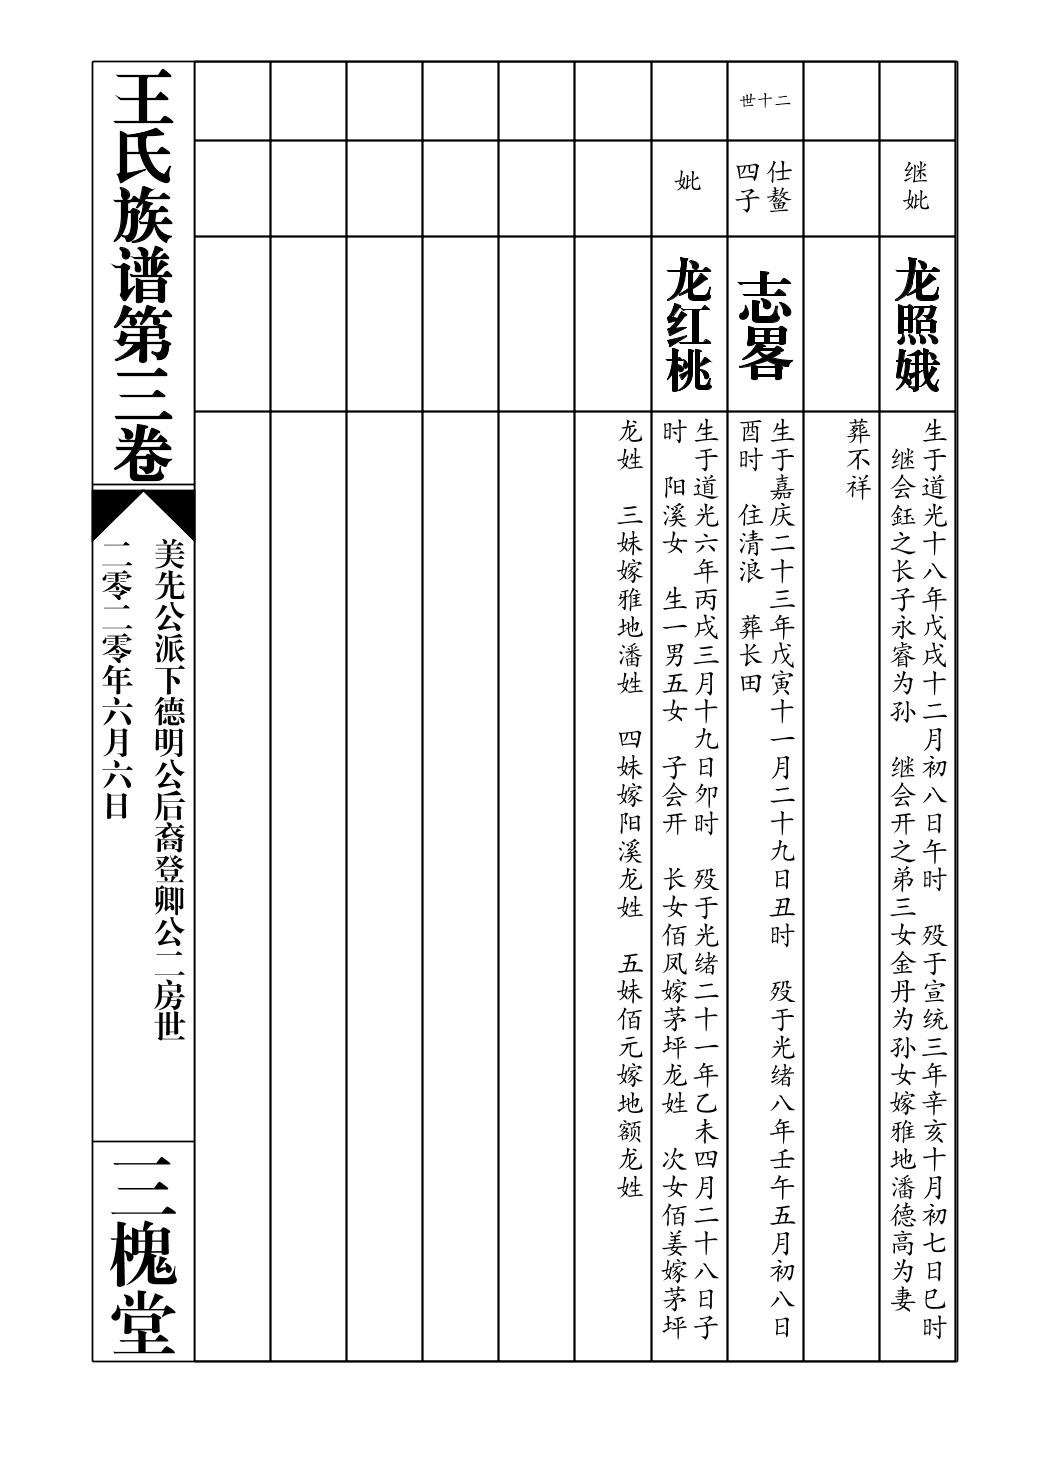 继妣
龙照娥
生于道光十八年戊戌十二月初八日午时　殁于宣统三年辛亥十月初七日巳时
继会鈺之长子永睿为孙　继会开之弟三女金丹为孙女嫁雅地潘德高为妻
葬不祥
二十世
仕鳌
四子
志畧
生于嘉庆二十三年戊寅十一月二十九日丑时　殁于光绪八年壬午五月初八日
酉时　住清浪　葬长田
妣
龙红桃
生于道光六年丙戌三月十九日卯时　殁于光绪二十一年乙未四月二十八日子
时　阳溪女　生一男五女　子会开　长女佰凤嫁茅坪龙姓　次女佰姜嫁茅坪
龙姓　三妹嫁雅地潘姓　四妹嫁阳溪龙姓　五妹佰元嫁地额龙姓
王氏族谱第三卷
美先公派下德明公后裔登卿公二房世
二零二零年六月六日
三槐堂